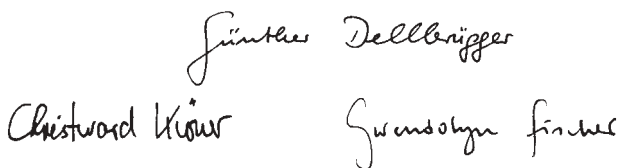 Günther Dellbrügger
Christward Kröner Gwendolyn Fischer